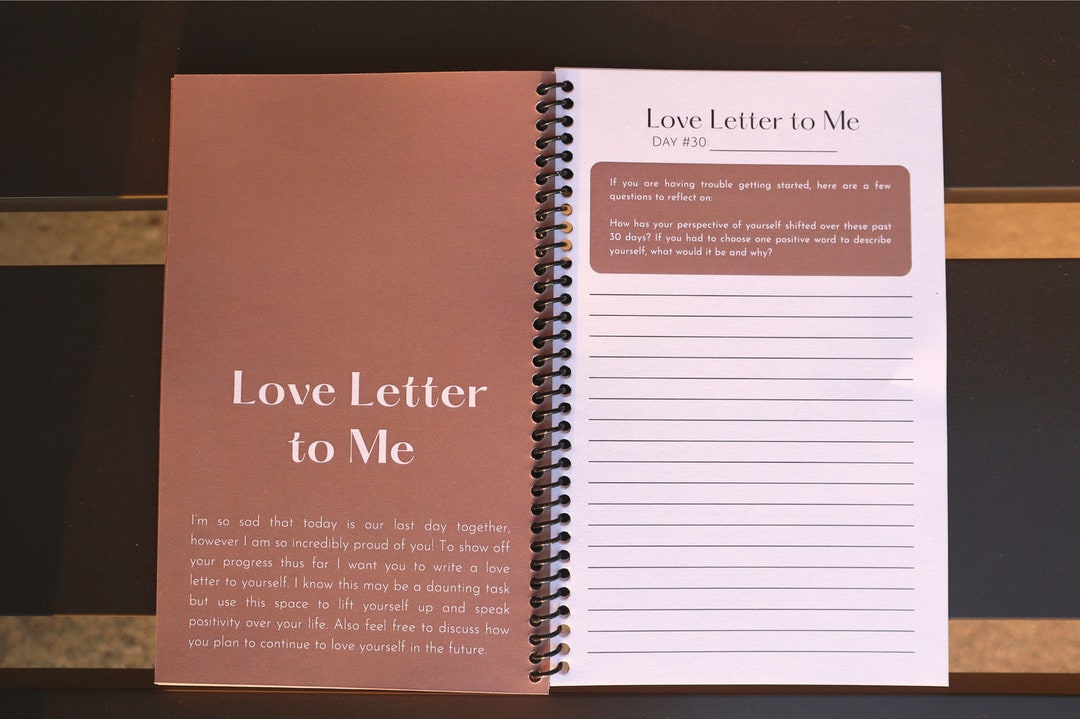 Love Letter
to Me
I'm so sad that today is our last day together,
however I am so incredibly proud of you! To show off
your progress thus far I want you to write a love
letter to yourself. I know this may be a daunting task
but use this space to lift yourself up and speak
positivity over your life. Also feel free to discuss how
you plan to continue to love yourself in the future.
Love Letter to Me
DAY #30:
If you are having trouble getting started, here are a few
questions to reflect on:
How has your perspective of yourself shifted over these past
30 days? If you had to choose one positive word to describe
yourself, what would it be and why?